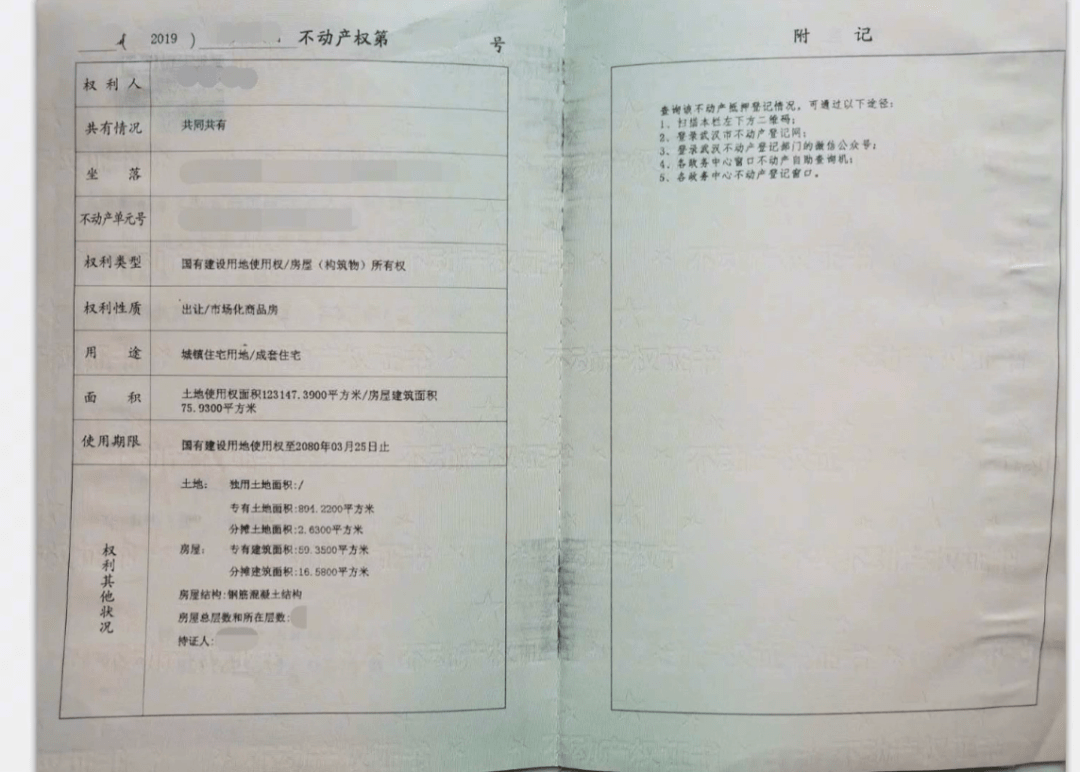 ( 2019 ) 不动产权第 号
权利人
共有情况 共同共有
坐落
不动产单元号
权利类型 国有建设用地使用权/房屋（构筑物）所有权
权利性质 出让/市场化商品房
用途 城镇住宅用地/成套住宅
面积 土地使用权面积123147.3900平方米/房屋建筑面积
75.9300平方米
使用期限 国有建设用地使用权至2080年03月25日止
权利其他状况
土地： 独用土地面积:/
专有土地面积:804.2200平方米
分摊土地面积:2.6300平方米
房屋： 专有建筑面积:59.3500平方米
分摊建筑面积:16.5800平方米
房屋结构:钢筋混凝土结构
房屋总层数和所在层数:
持证人:
附记
查询该不动产抵押登记情况，可通过以下途径：
1、扫描本栏左下方二维码；
2、登录武汉市不动产登记网；
3、登录武汉不动产登记部门的微信公众号；
4、各政务中心窗口不动产自助查询机；
5、各政务中心不动产登记窗口。